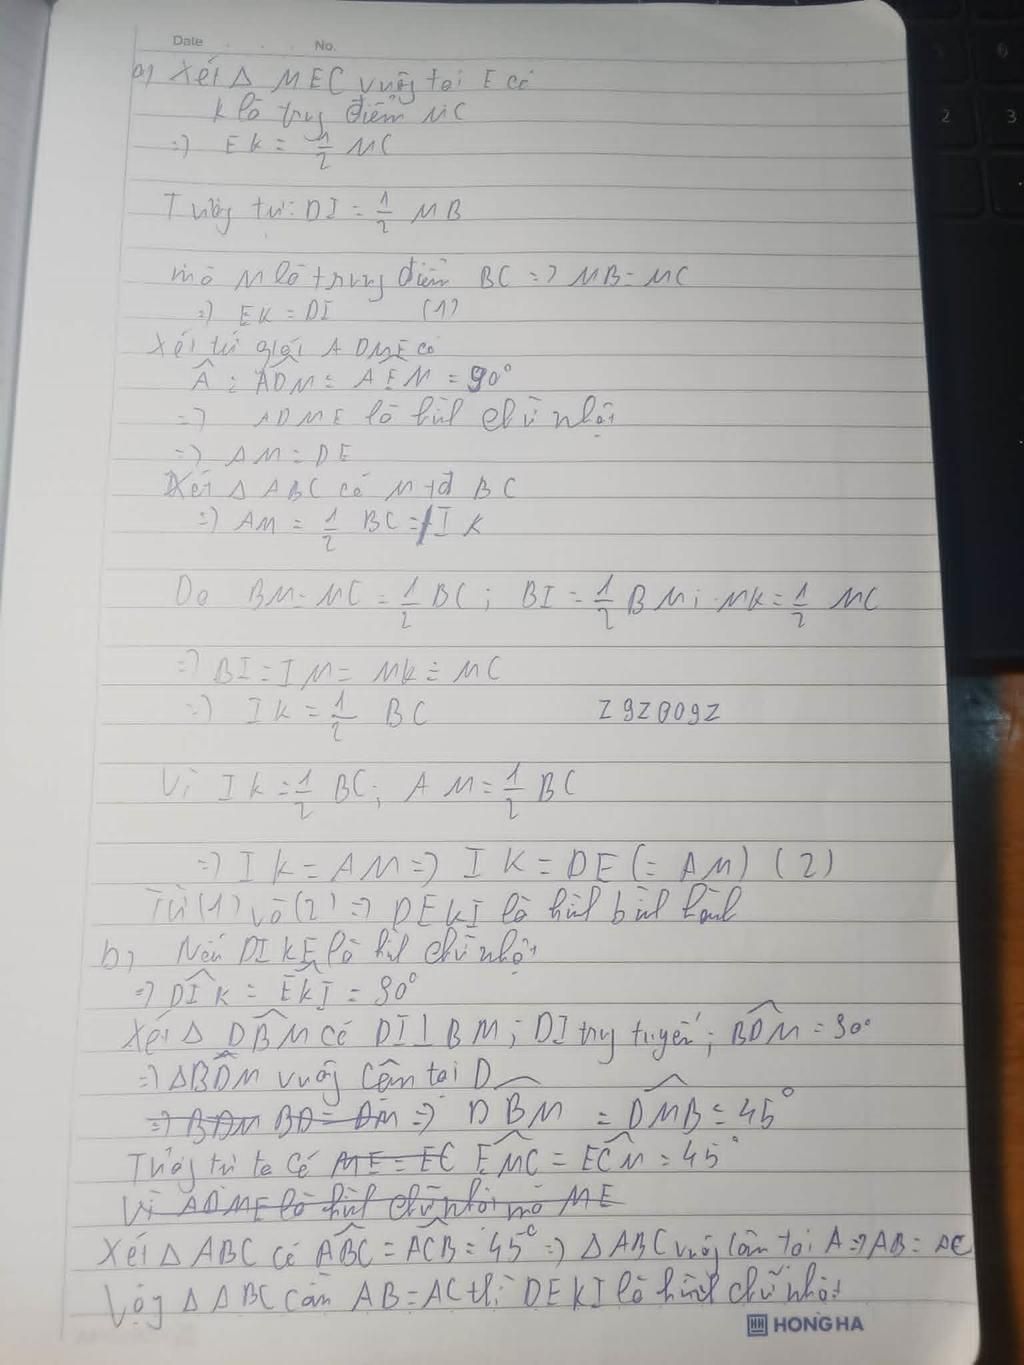 Date . . . No.
a, Xét Δ MEC vuông tại E có
K là trung điểm MC
=> EK = 1/2 MC
Tương tự: DI = 1/2 MB
mà M là trung điểm BC => MB = MC
=> EK = DI (1)
Xét tứ giác ADME có
Â = ADM = AEM = 90°
=> ADME là hình chữ nhật
=> AM = DE
Xét Δ ABC có M tđ BC
=> AM = 1/2 BC = IK
Do BM = MC = 1/2 BC ; BI = 1/2 BM ; MK = 1/2 MC
=> BI = IM = MK = MC
=> IK = 1/2 BC z9z009z
Vì IK = 1/2 BC ; AM = 1/2 BC
=> IK = AM => IK = DE (= AM) (2)
Từ (1) và (2) => DEKI là hình bình hành
b, Nếu DIKE là hình chữ nhật
=> DIK = EKI = 90°
Xét Δ DBM có DI ⊥ BM ; DI trung tuyến ; BDM = 90°
=> ΔBDM vuông cân tại D
=> BDM BD = DM => DBM = DMB = 45°
Tương tự ta có ME = EC EMC = ECM = 45°
Vì ADME là hình chữ nhật mà ME
Xét Δ ABC có ABC = ACB = 45° => Δ ABC vuông cân tại A => AB = AC
Vậy Δ ABC cần AB = AC thì DEKI là hình chữ nhật
HONG HA